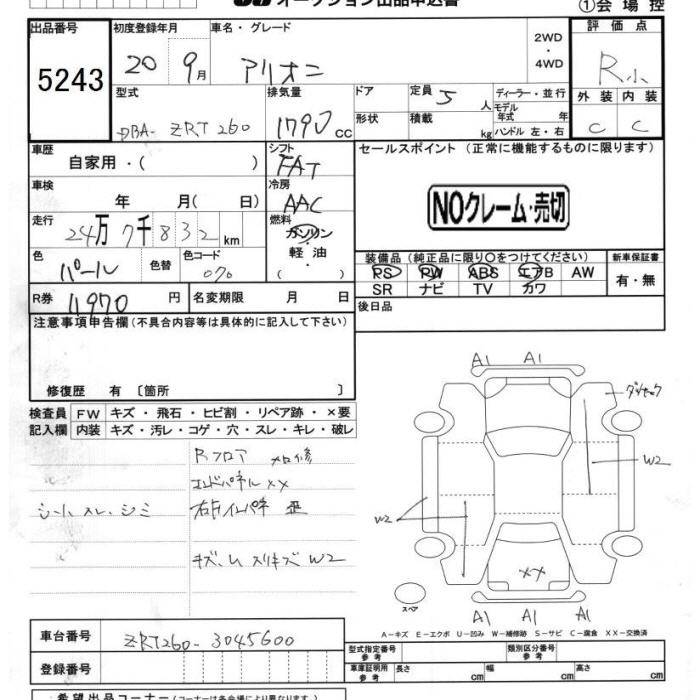 オークション出品申込書
①会場控
出品番号
5243
初度登録年月
20 9月
車名・グレード
アリオン
2WD
・
4WD
評価点
R小
型式
DBA- ZRT260
排気量
1790 cc
ドア
定員 5 人
ディーラー・並行
形状
積載 kg
モデル年式 年
ハンドル 左・右
外装 内装
C C
車歴
自家用・( )
シフト
FAT
セールスポイント (正常に機能するものに限ります)
NOクレーム・売切
車検
年 月( 日)
冷房
AAC
走行
24万7千832km
燃料
ガソリン
・
軽油
色
パール
色替
色コード
070
装備品(純正品に限り○をつけてください)
PS PW ABS エアB AW
SR ナビ TV カワ
新車保証書
有・無
R券 11970 円
名変期限 月 日
後日品
注意事項申告欄(不具合内容等は具体的に記入して下さい)
修復歴 有 〔箇所 〕
検査員記入欄
FW キズ・飛石・ヒビ割・リペア跡・×要
内装 キズ・汚レ・コゲ・穴・スレ・キレ・破レ
Rフロア
エンドパネル XX
シート スレ・シミ
W2
A1 A1
W2
W2
XX
スペア
A1 A1 A1
A-キズ E-エクボ U-凹み W-補修跡 S-サビ C-腐食 XX-交換済
車台番号
ZRT260-3045600
登録番号
型式指定番号 参考
類別区分番号 参考
車庫証明用 参考
長さ cm
幅 cm
高さ cm
希望出品コーナー(コーナーは各会場により異なります。